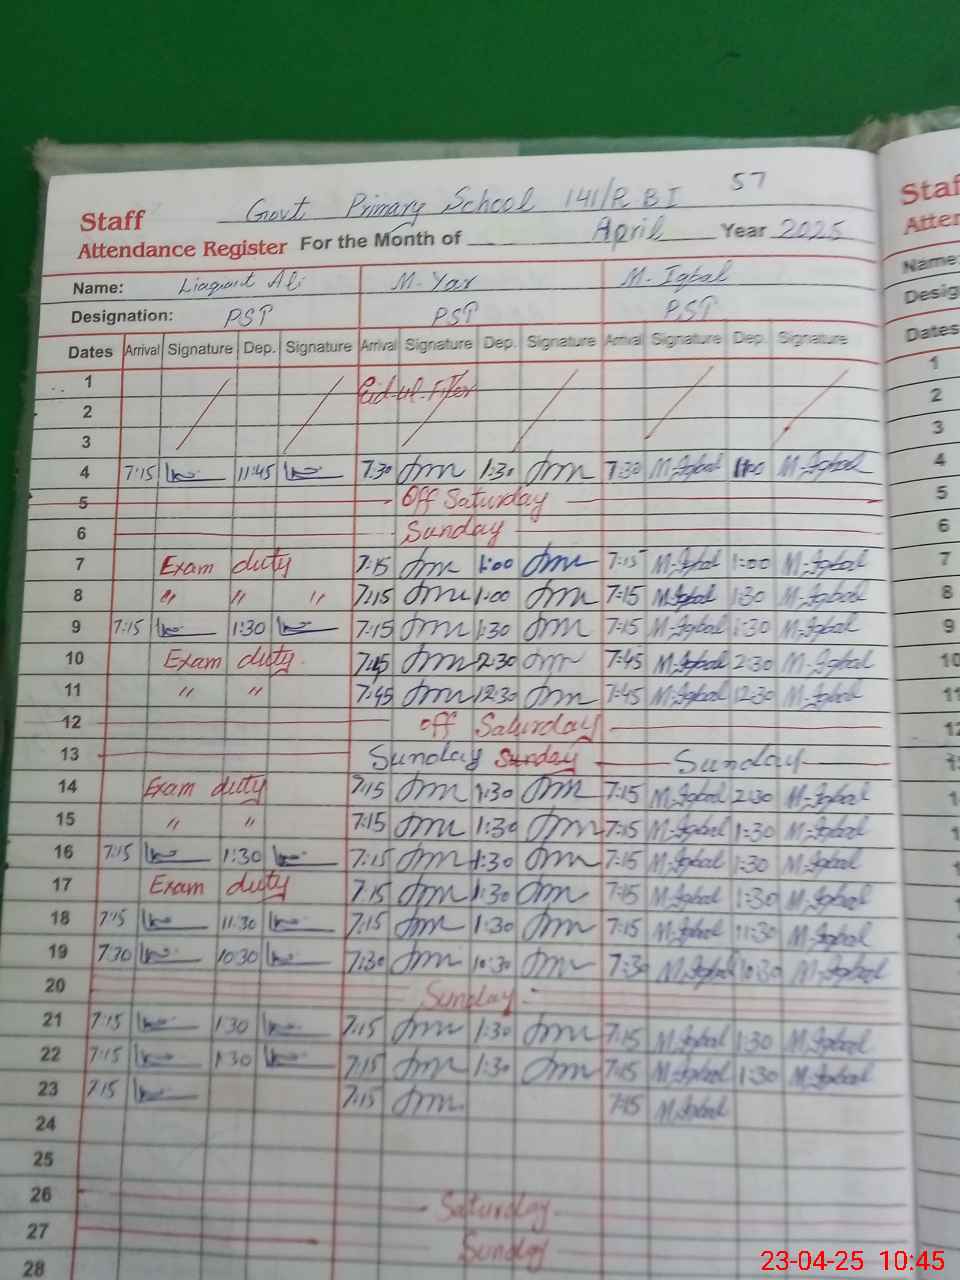 Govt Primary School 141/R B I 57
Staff
Attendance Register For the Month of April Year 2025
Name: Liaquat Ali M-Yar M-Iqbal
Designation: PST PST PST
Dates Arrival Signature Dep. Signature Arrival Signature Dep. Signature Arrival Signature Dep. Signature
1 Eid-ul-Fiter
2
3
4 7:15 11:45 7:30 1:30 7:30 M-Iqbal M-Iqbal
5 Off Saturday
6 Sunday
7 Exam duty 7:15 1:00 7:15 M-Iqbal 1:00 M-Iqbal
8 " " " 7:15 1:00 7:15 M-Iqbal 1:30 M-Iqbal
9 7:15 1:30 7:15 1:30 7:15 M-Iqbal 1:30 M-Iqbal
10 Exam duty 2:30 7:45 M-Iqbal 2:30 M-Iqbal
11 " " 7:45 12:30 7:45 M-Iqbal 12:30 M-Iqbal
12 off Saturday
13 Sunday Sunday Sunday
14 Exam duty 7:15 1:30 7:15 M-Iqbal 2:30 M-Iqbal
15 " " 7:15 1:30 7:15 M-Iqbal 1:30 M-Iqbal
16 7:15 1:30 7:15 1:30 7:15 M-Iqbal 1:30 M-Iqbal
17 Exam duty 7:15 1:30 7:15 M-Iqbal 1:30 M-Iqbal
18 7:15 11:30 7:15 1:30 7:15 M-Iqbal 11:30 M-Iqbal
19 7:30 10:30 7:30 10:30 7:30 M-Iqbal 10:30 M-Iqbal
20 Sunday
21 7:15 1:30 7:15 1:30 7:15 M-Iqbal 1:30 M-Iqbal
22 7:15 1:30 7:15 1:30 7:15 M-Iqbal 1:30 M-Iqbal
23 7:15 7:15 7:15 M-Iqbal
24
25
26 Saturday
27 Sunday
28
Staf
Atten
Name:
Desig
Dates
1
2
3
4
5
6
7
8
9
10
11
12
23-04-25 10:45